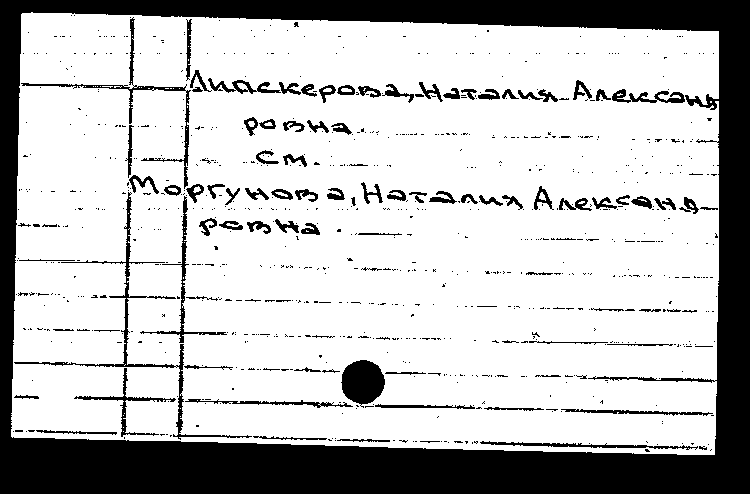 Липскерова, Наталия Александ
ровна.
см.
Моргунова, Наталия Александ-
ровна.